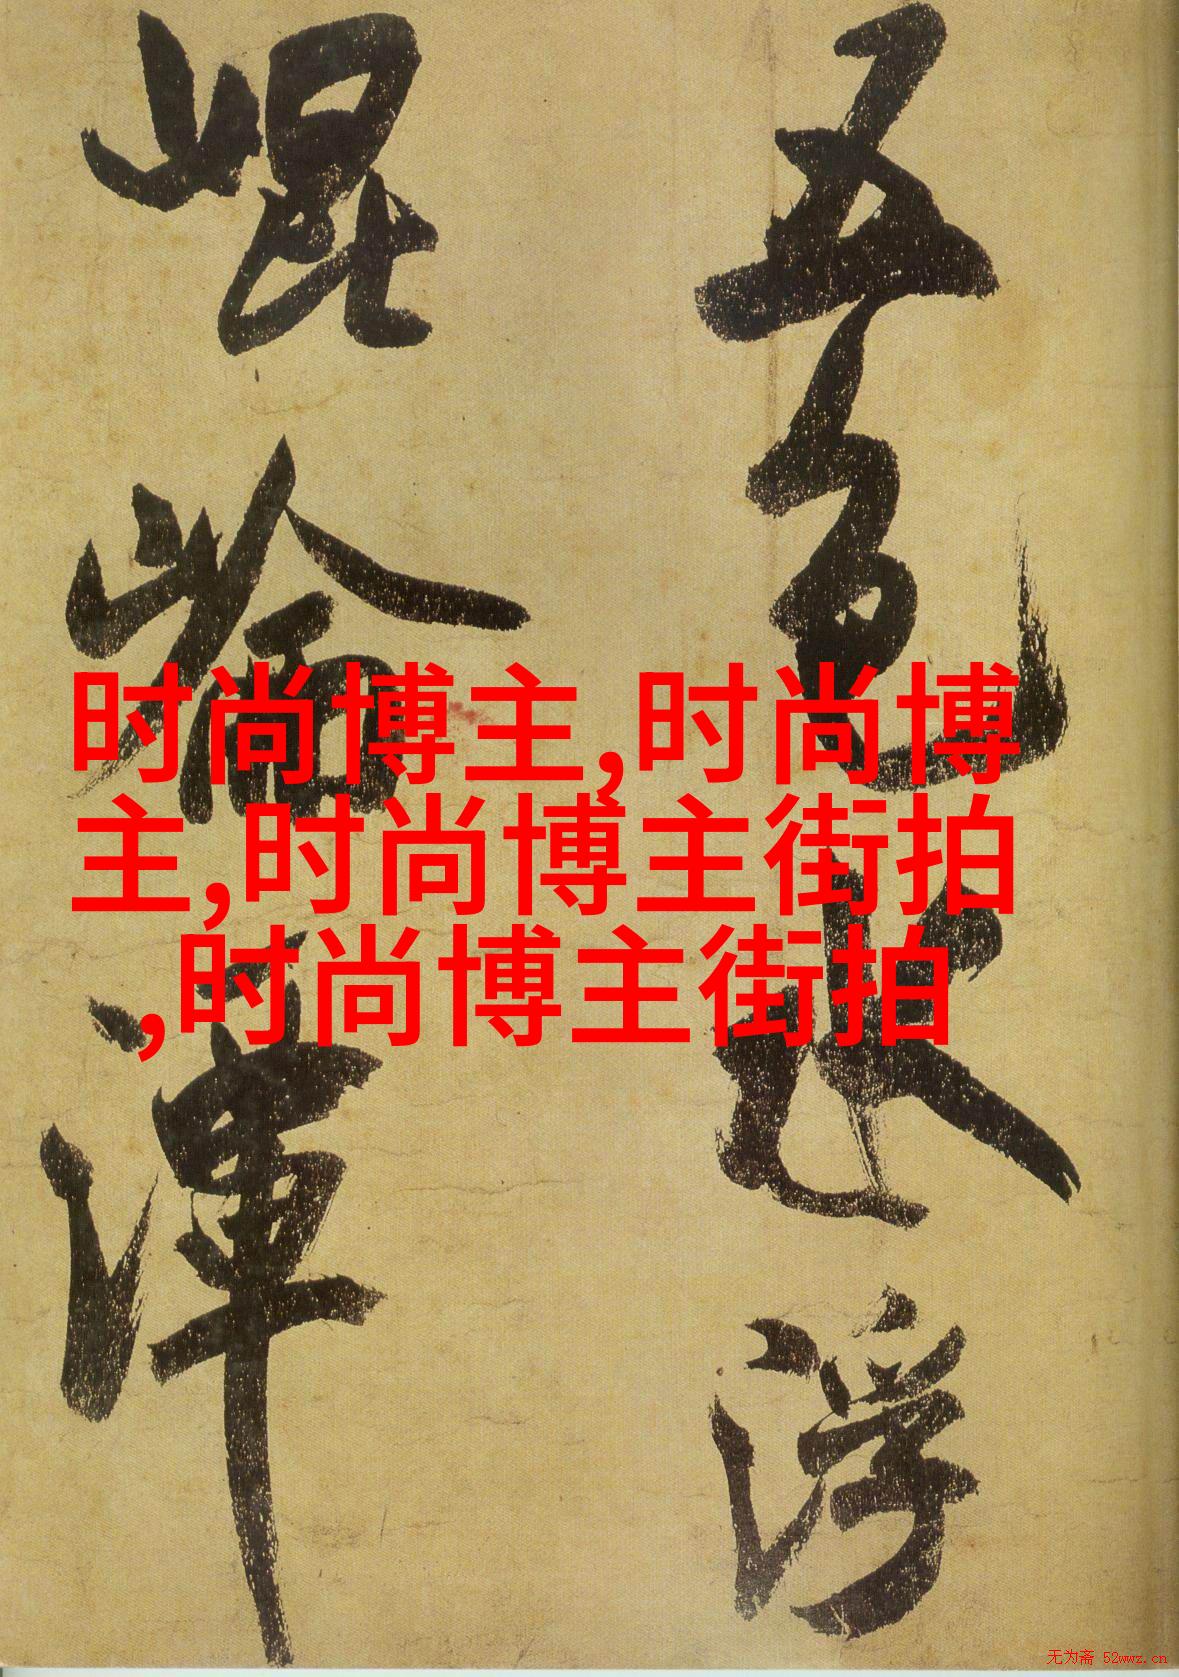 五色水浮
崐崙渾
时尚博主,时尚博
主,时尚博主街拍
,时尚博主街拍
无为斋 52wwz.cn